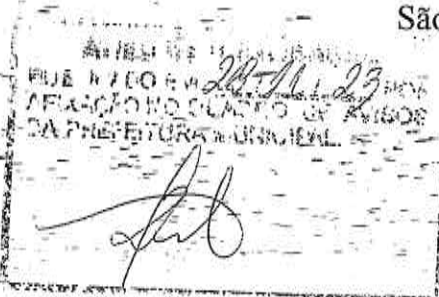 São
PUBLICADO EM 28/11/23 POR
AFIXAÇÃO NO QUADRO DE AVISOS
DA PREFEITURA MUNICIPAL.